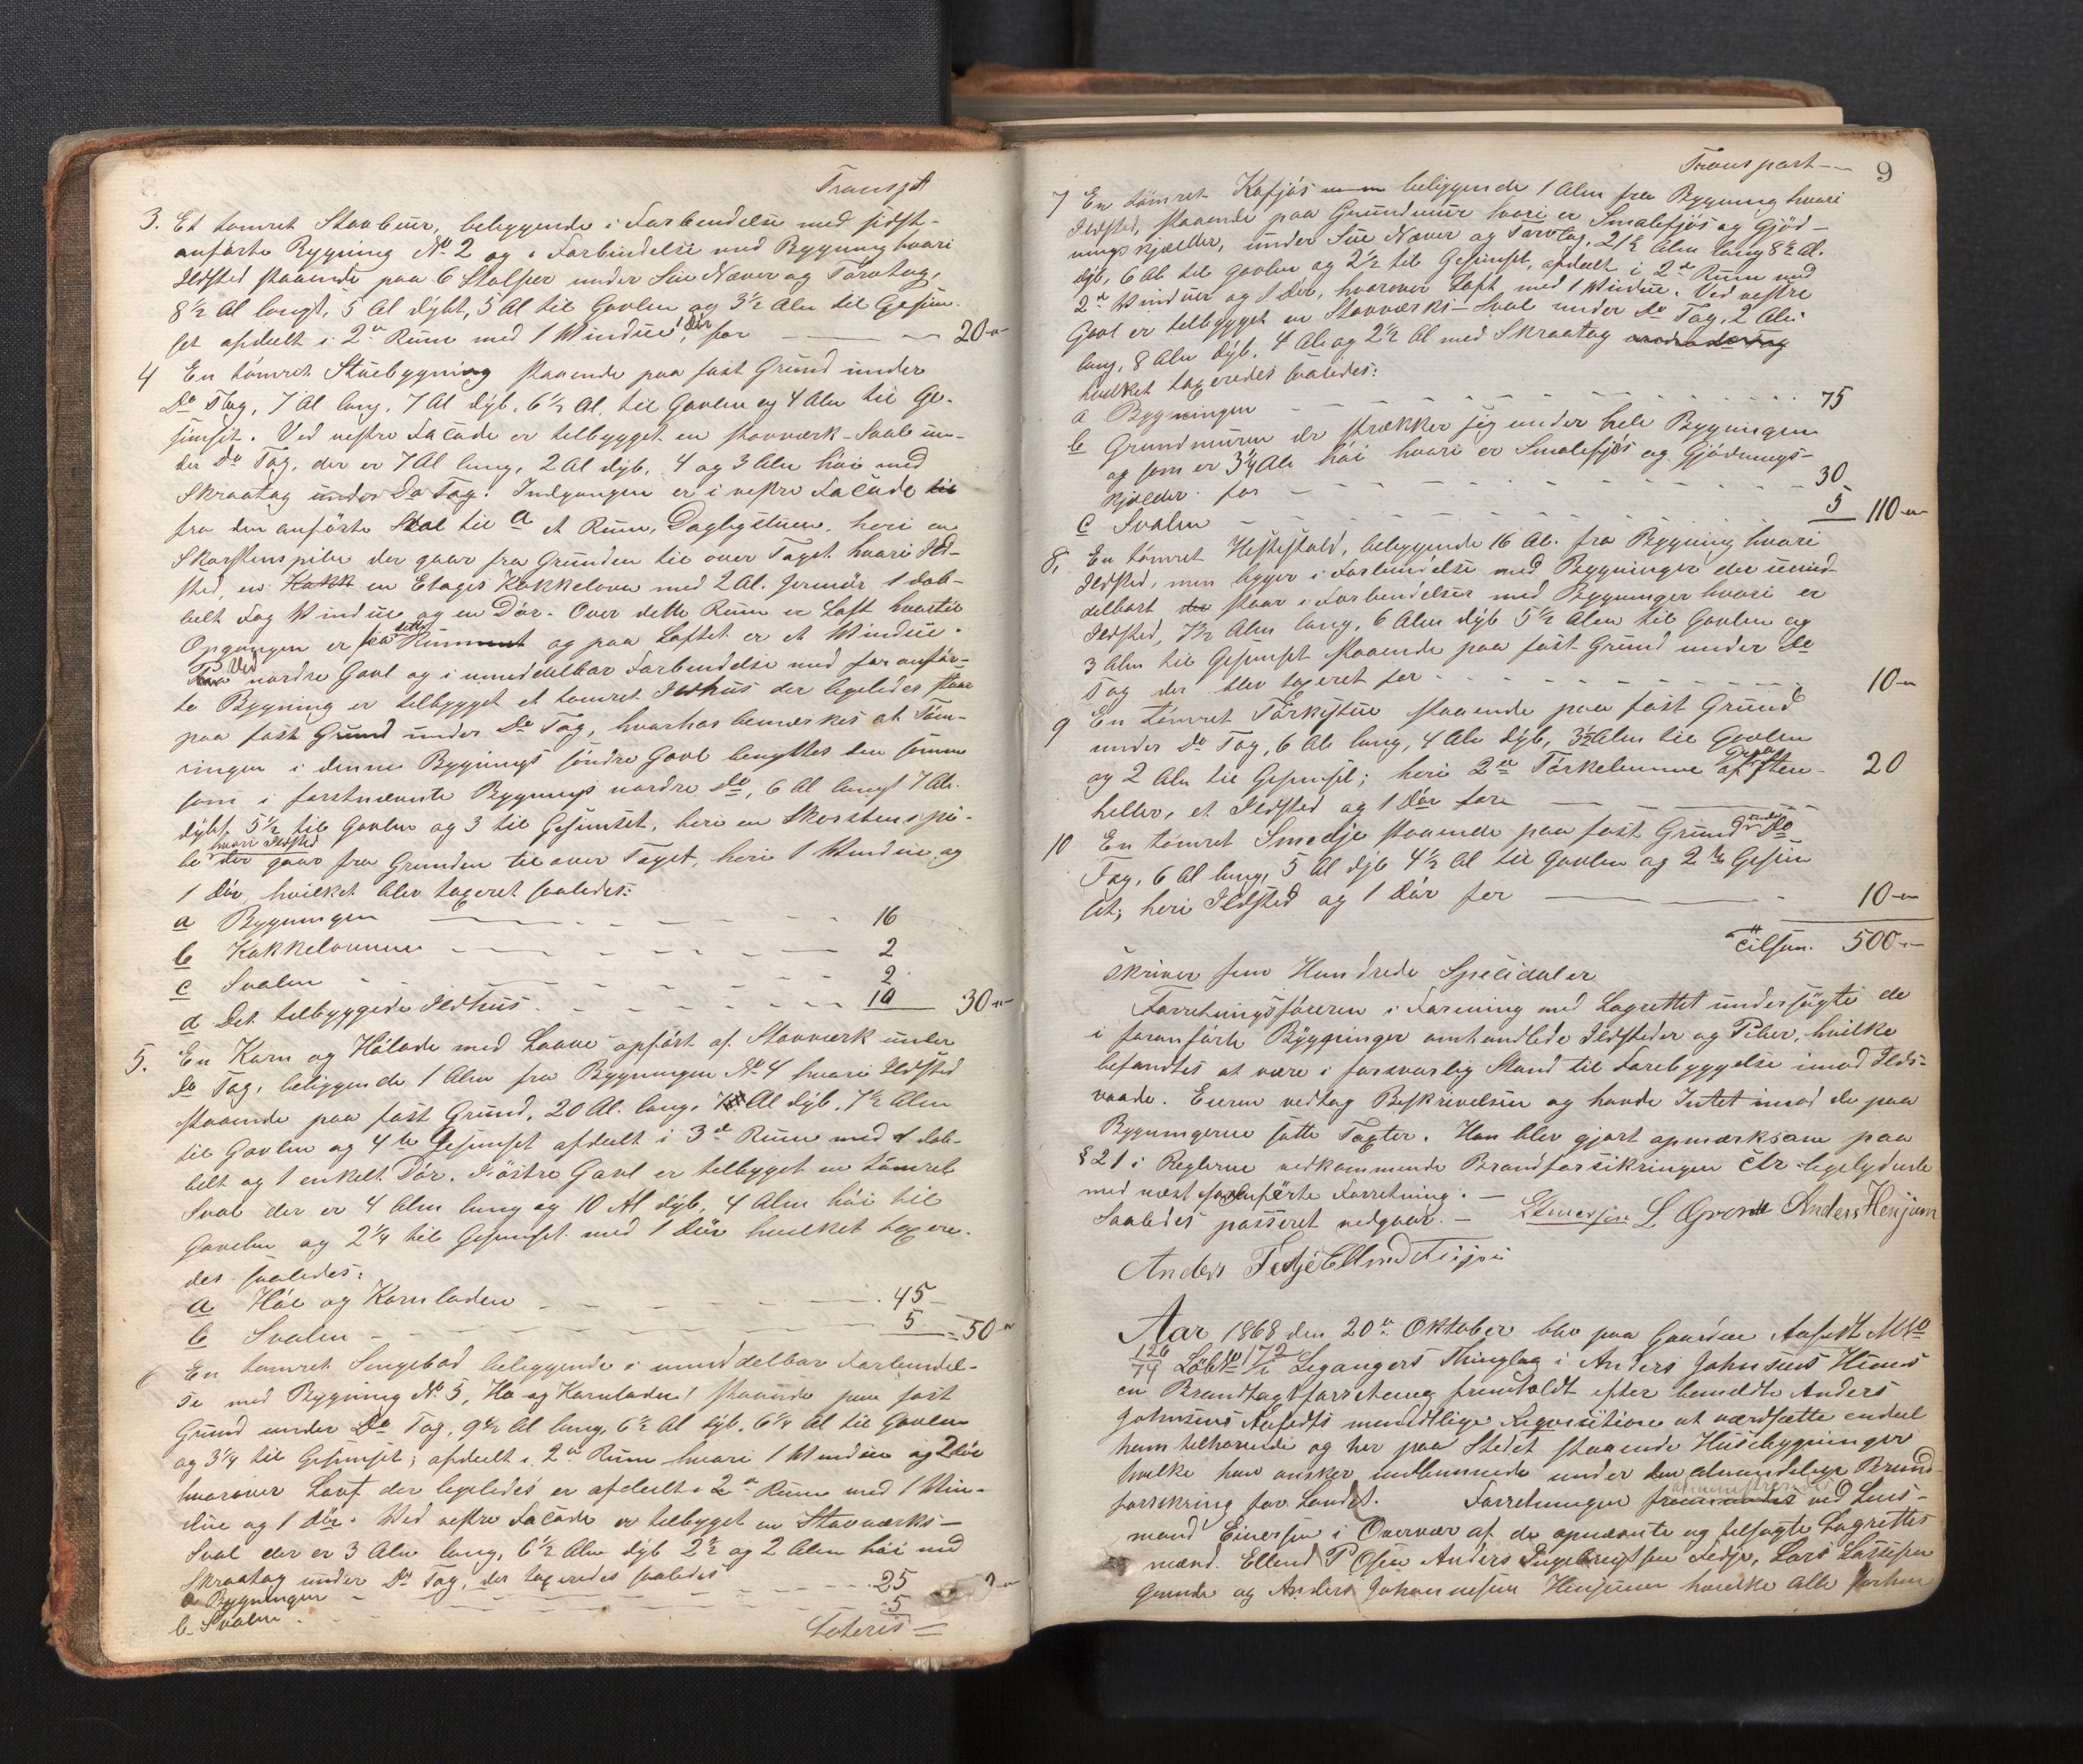 Transpt
3. Et tømret Stavbuur, beliggende i Forbindelse med sidst-
anførte Bygning No 2 og i Forbindelse med Bygning hvori
Ildsted staaende paa 6 Stolper under Sue Næver og Törvtag,
8½ Al langt, 5 Al dybt, 5 Al til Gavlen og 3½ Alen til Gesim-
set afdeelt i 2de Rum med 1 Vindue, 1 Dør for 20-"-
4 En tömret Stuebygning staaende paa fast Grund under
Do Tag, 7 Al lang, 7 Al dyb, 6½ Al. til Gavlen og 4 Alen til Ge-
simset. Ved vestre Facade er tilbygget en stavværk-Sval un-
der Do Tag, der er 7 Al lang, 2 Al dyb, 4 og 3 Alen höi med
Skraatag under Do Tag. Indgangen er i vestre Facade til
fra den anförte Sval til a et Rum, Dagligstuen, heri en
Skorstenspibe der gaar fra Grunden til over Taget hvori Ild-
sted, en Kakk en Etages Kakkelovn med 2 Al. Jernrör 1 dob-
belt Fag Vindue og en Dör. Over dette Rum er Loft hvortil
Opgangen er fra dette Rummet og paa Loftet er et Vindue.
Paa Ved nordre Gavl og i umiddelbar Forbindelse med foranför-
te Bygning er tilbygget et tømret Ildhus der ligeledes staar
paa fast Grund under Do Tag, hvorhos bemærkes at Töm-
ringen i denne Bygnings söndre Gavl benyttes den samme
som i förstnævnte Bygnings nordre Do, 6 Al langt 7 Al.
dybt, 5½ til Gavlen og 3 til Gesimset, heri en Skorstenspi-
be hvori Ildsted der gaar fra Grunden til over Taget, heri 1 Vindue og
1 Dör, hvilket blev taxeret saaledes:
a Bygningen 16
b Kakkelovnen 2
c Svalen 2
d Det tilbyggede Ildhus 10 30-"-
5. En Korn og Hölade med Laave opfört af Stavværk under
Do Tag, beliggende 1 Alen fra Bygningen No 4 hvori Ildsted
staaende paa fast Grund, 20 Al. lang, Al dyb, 7½ Alen
til Gavlen og 4 til Gesimset afdeelt i 3de Rum med 1 dob-
belt og 1 enkelt Dör. I östre Gavl er tilbygget en tömret
Sval der er 4 Alen lang og 10 Al dyb, 4 Alen höi til
Gavlen og 2¼ til Gesimset med 1 Dör hvilket taxere-
des saaledes:
a Höe og Kornladen 45
b Svalen 5 50-"-
6 En tömret Sengebod beliggende i umiddelbar Forbindel-
se med Bygning No 5, Hö og Kornladen! staaende paa fast
Grund under Do Tag, 9½ Al lang, 6½ Al dyb, 6¼ Al til Gavlen
og 3¼ til Gesimset; afdeelt i 2de Rum hvori 1 Vindue og 2 Döre
hvorover Loft der ligeledes er afdeelt i 2de Rum med 1 Vin-
due og 1 Dör. Ved vestre Facade er tilbygget en Stavværks-
Sval der er 3 Alen lang, 6½ Alen dyb 2½ og 2 Alen höi med
Skraatag under Do Tag, der taxeredes saaledes
a Bygningen 25
b. Svalen 5
Lateris
Transport 9
7 En tömret Kofjös beliggende 1 Alen fra Bygning hvori
Ildsted, staaende paa Grundmuur hvori er Smalefjös og Gjöd-
ningskjælder, under Sue Næver og Törvtag, 21½ Alen lang 8½ Al.
dyb, 6 Al til Gavlen og 2½ til Gesimset, afdeelt i 2de Rum med
2de Vinduer og 1 Dör, hvorover Loft med 1 Vindue. Ved vestre
Gavl er tilbygget en Stavværks-Sval under Do Tag, 2 Alen
lang, 8 Alen dyb, 4 Al og 2½ Al med Skraatag
hvilket taxeredes saaledes:
a Bygningen 75
b Grundmuren der strækker sig under hele Bygningen
og som er 3¼ Al höi hvori er Smalefjös og Gjödnings-
kjælder. for 30
c Svalen 5 110-"-
8, En tömret Hestestald, beliggende 16 Al. fra Bygning hvori
Ildsted, men ligger i Forbindelse med Bygninger der umid-
delbart staar i Forbindelse med Bygninger hvori er
Ildsted, 7½ Alen lang, 6 Alen dyb 5½ Alen til Gavlen og
3 Alen til Gesimset staaende paa fast Grund under Do
Tag der blev taxeret for 10-"-
9 En tömret Törkestue staaende paa fast Grund
under Do Tag, 6 Al lang, 4 Alen dyb, 3½ Alen til Gavlen
og 2 Alen til Gesimset; heri 2de Törkebrunne af Steen-
heller, et Ildsted og 1 Dör for 20
10 En tömret Smedje staaende paa fast Grund under Do
Tag, 6 Al lang, 5 Al dyb 4½ Al til Gavlen og 2 til Gesim
set; heri Ildsted og 1 Dör for 10-"-
Tilsam. 500-"-
skriver fem Hundrede Speciedaler
Forretningsföreren i Forening med Lagrettet undersögte de
i foranförte Bygninger omhandlede Ildsteder og Piber, hvilke
befandtes at være i forsvarlig Stand til Forebyggelse imod Ilds-
vaade. Eieren vedtog Beskrivelsen og havde Intet imod de paa
Bygningerne satte Taxter. Han blev gjort opmærksom paa
§ 21 i Reglerne vedkommende Brandforsikringen etc ligelydende
med næst foranförte Forretning. -
Saaledes passeret vedgaar. - Einersen L Grønde Anders Henjum
Anders Fedje Ellend
Aar 1868 den 20de Oktober blev paa Gaarden Aafedt MNo
126/74 LöbNo 172/1 Leganger Thinglag i Anders Johnsens Huus
en Brandtaxtforretning fremholdt efter bemeldte Anders
Johnsens Aafedts mundtlige Reqvisition at værdsætte endeel
ham tilhørende og her paa Stedet staaende Husebygninger
hvilke han ønsker indlemmede under den almindelige Brand-
forsikring for Landet. Forretningen fremmedes administreredes ved Lens-
mand Einersen i Overvær af de opnævnte og tilsagte Lagrettes
mænd. Ellend P Olsen Anders Ingebrigtsen Fedje, Lars Larsen
Grønde og Anders Johannesen Henjum hvilke alle forhen